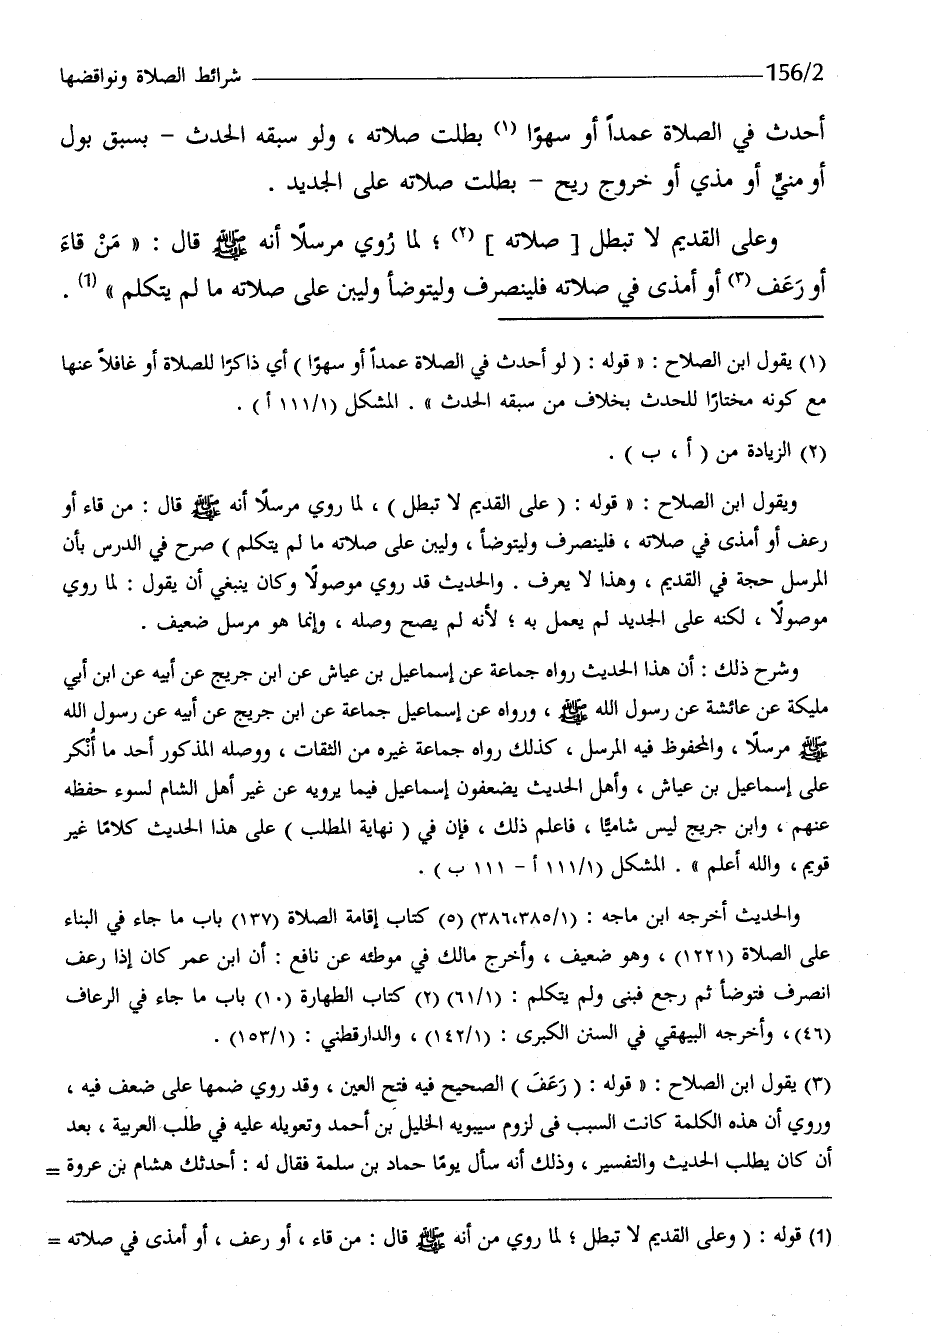 156/2 ــــــ شرائط الصلاة ونواقضها
أحدث في الصلاة عمداً أو سهوًا (١) بطلت صلاته ، ولو سبقه الحدث – بسبق بول
أو منيٍّ أو مذي أو خروج ريح – بطلت صلاته على الجديد .
وعلى القديم لا تبطل [ صلاته ] (٢) ؛ لما رُوي مرسلًا أنه ﷺ قال : « مَنْ قاءَ
أو رَعَف (٣) أو أمذى في صلاته فلينصرف وليتوضأ وليبن على صلاته ما لم يتكلم » (1) .
(١) يقول ابن الصلاح : « قوله : ( لو أحدث في الصلاة عمداً أو سهوًا ) أي ذاكرًا للصلاة أو غافلاً عنها
مع كونه مختارًا للحدث بخلاف من سبقه الحدث » . المشكل (١١١/١ أ) .
(٢) الزيادة من ( أ ، ب ) .
ويقول ابن الصلاح : « قوله : ( على القديم لا تبطل ) ، لما روي مرسلًا أنه ﷺ قال : من قاء أو
رعف أو أمذى في صلاته ، فلينصرف وليتوضأ ، وليبن على صلاته ما لم يتكلم ) صرح في الدرس بأن
المرسل حجة في القديم ، وهذا لا يعرف . والحديث قد روي موصولًا وكان ينبغي أن يقول : لما روي
موصولًا ، لكنه على الجديد لم يعمل به ؛ لأنه لم يصح وصله ، وإنما هو مرسل ضعيف .
وشرح ذلك : أن هذا الحديث رواه جماعة عن إسماعيل بن عياش عن ابن جريج عن أبيه عن ابن أبي
مليكة عن عائشة عن رسول الله ﷺ ، ورواه عن إسماعيل جماعة عن ابن جريج عن أبيه عن رسول الله
ﷺ مرسلًا ، والمحفوظ فيه المرسل ، كذلك رواه جماعة غيره من الثقات ، ووصله المذكور أحد ما أُنْكر
على إسماعيل بن عياش ، وأهل الحديث يضعفون إسماعيل فيما يرويه عن غير أهل الشام لسوء حفظه
عنهم ، وابن جريج ليس شاميًّا ، فاعلم ذلك ، فإن في ( نهاية المطلب ) على هذا الحديث كلامًا غير
قويم ، والله أعلم » . المشكل (١١١/١ أ – ١١١ ب ) .
والحديث أخرجه ابن ماجه : (٣٨٦،٣٨٥/١) (٥) كتاب إقامة الصلاة (١٣٧) باب ما جاء في البناء
على الصلاة (١٢٢١) ، وهو ضعيف ، وأخرج مالك في موطئه عن نافع : أن ابن عمر كان إذا رعف
انصرف فتوضأ ثم رجع فبنى ولم يتكلم : (٦١/١) (٢) كتاب الطهارة (١٠) باب ما جاء في الرعاف
(٤٦) ، وأخرجه البيهقي في السنن الكبرى : (١٤٢/١) ، والدارقطني : (١٥٣/١) .
(٣) يقول ابن الصلاح : « قوله : ( رَعَفَ ) الصحيح فيه فتح العين ، وقد روي ضمها على ضعف فيه ،
وروي أن هذه الكلمة كانت السبب فى لزوم سيبويه الخليل بن أحمد وتعويله عليه في طلب العربية ، بعد
أن كان يطلب الحديث والتفسير ، وذلك أنه سأل يومًا حماد بن سلمة فقال له : أحدثك هشام بن عروة =
(1) قوله : ( وعلى القديم لا تبطل ؛ لما روي من أنه ﷺ قال : من قاء ، أو رعف ، أو أمذى في صلاته =